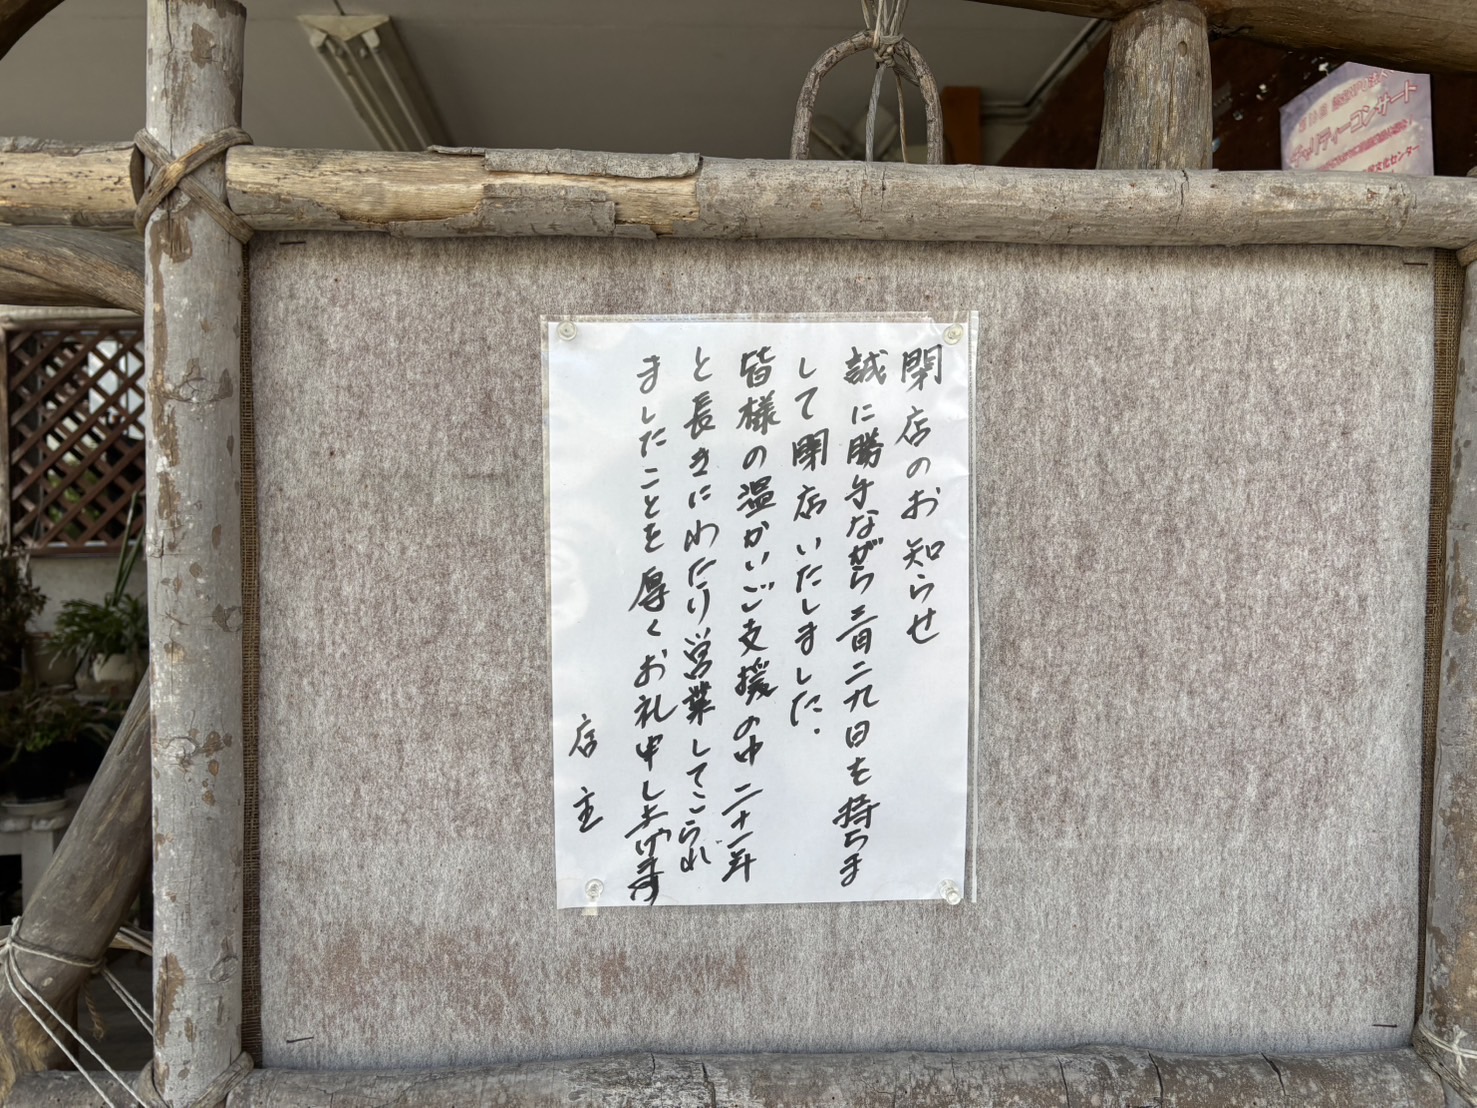 閉店のお知らせ
誠に勝手ながら三月二九日を持ちま
して閉店いたしました.
皆様の温かいご支援の中二十一年
と長きにわたり営業してこられ
ましたことを厚くお礼申し上げます
店主
チャリティーコンサート
文化センター